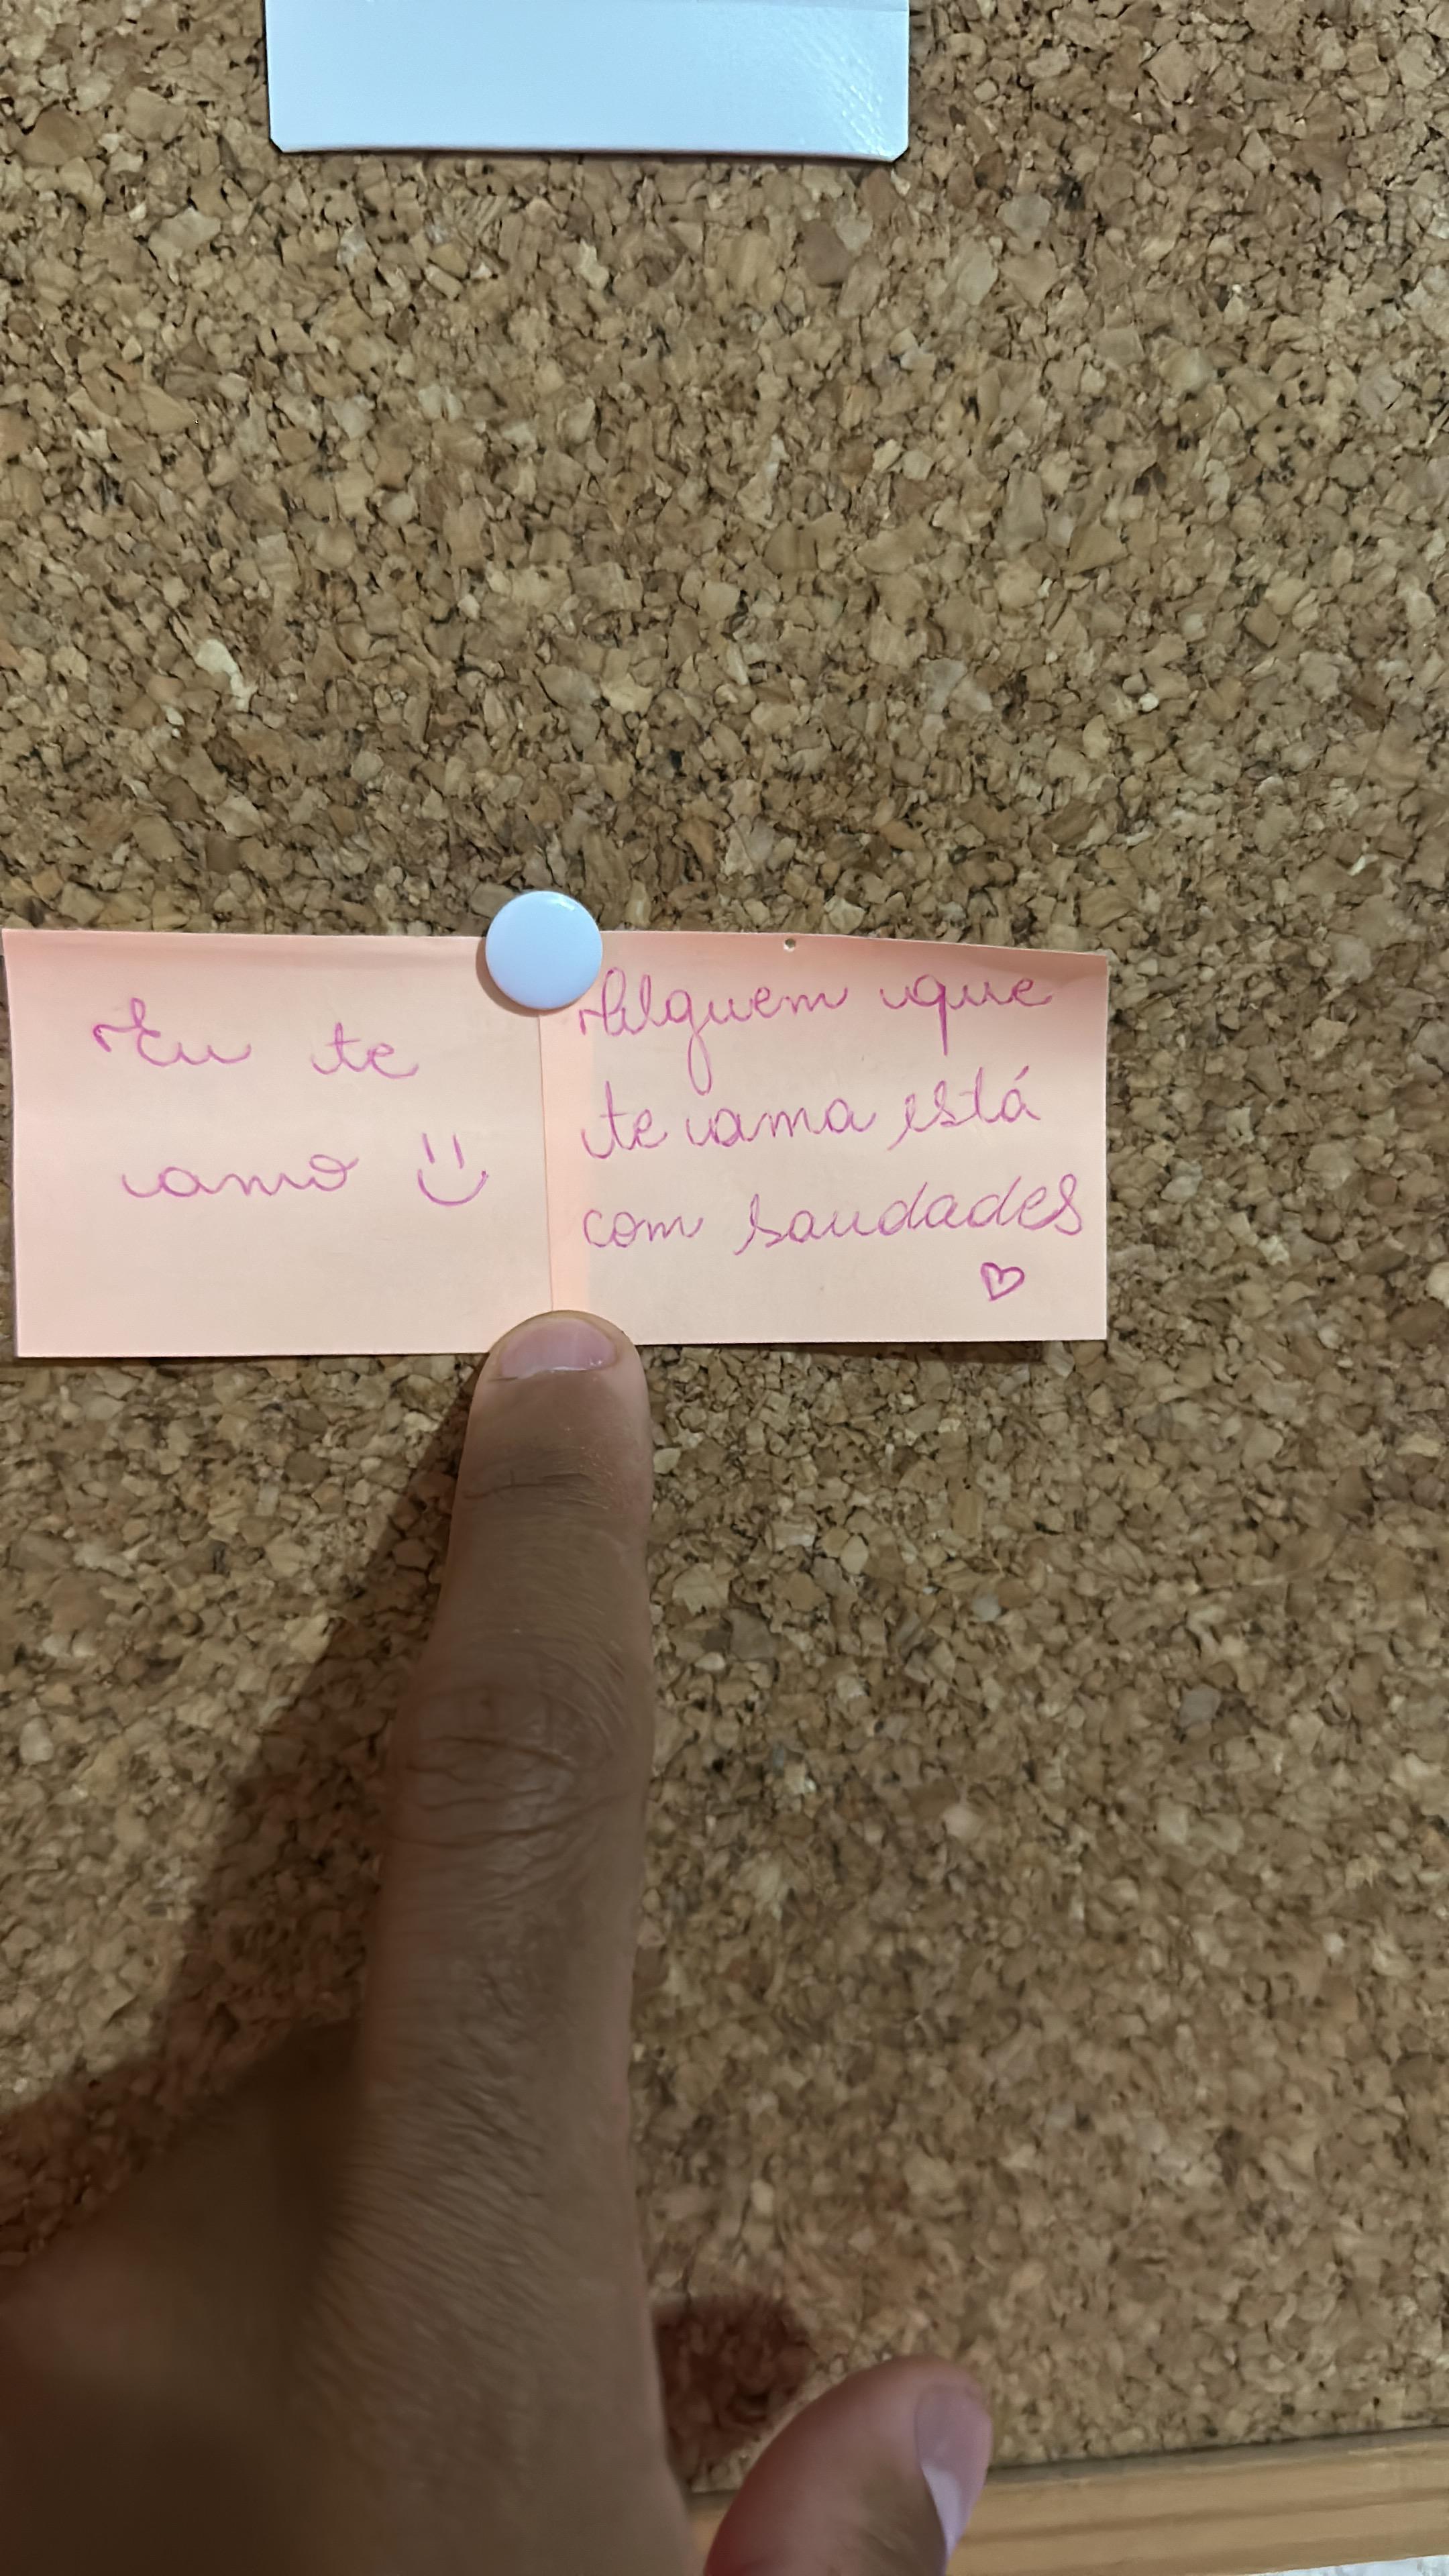 Eu te
amo
Alguem que
te ama está
com saudades